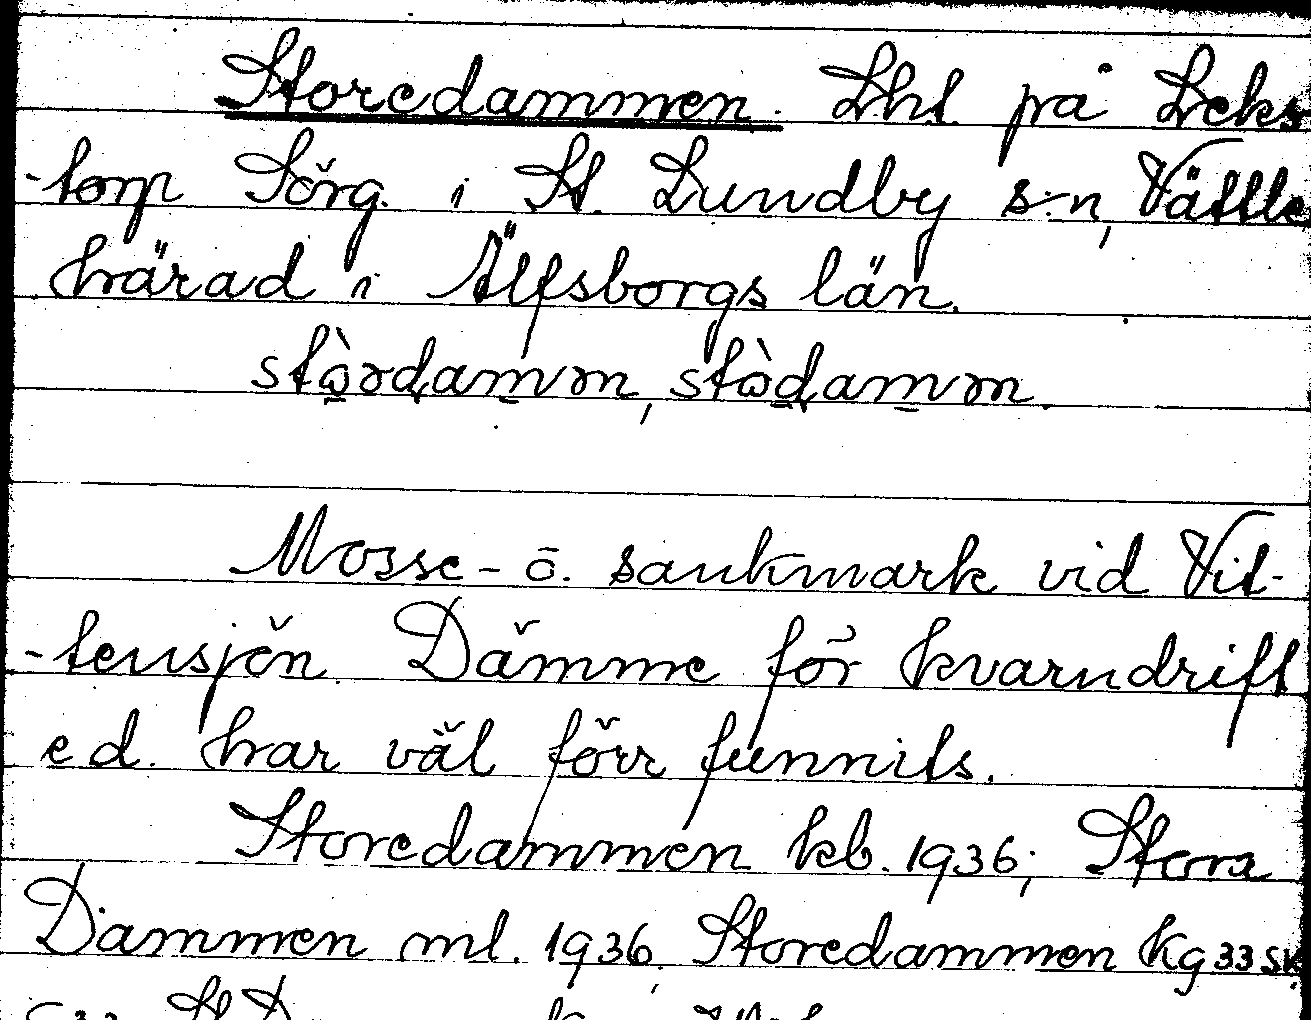 Storedammen. Lht på Leks
-torp Sörg. i St. Lundby s:n, Vättle
härad i Älfsborgs län.
Mosse- o. sankmark vid Vit-
-tensjön. Dämme för kvarndrift
e d. har väl förr funnits.
Storedammen kb. 1936; Stora
Dammen ml. 1936, Storedammen kg 33 SK